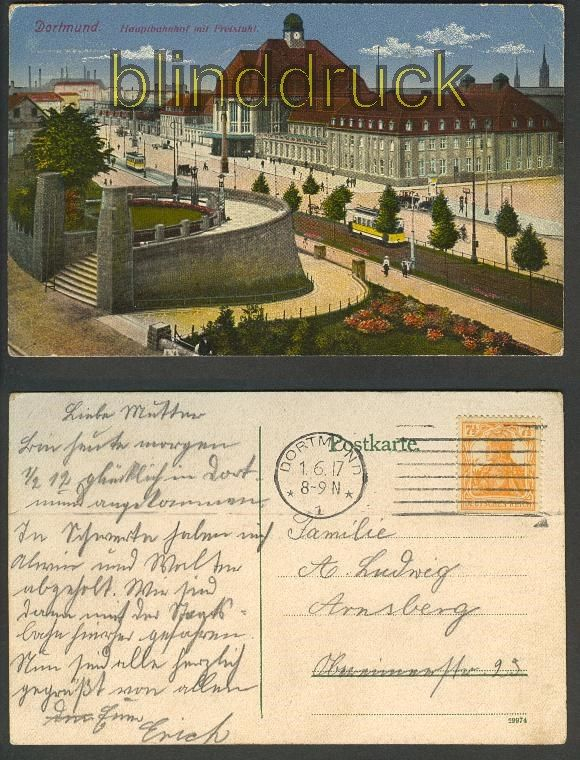 Dortmund. Hauptbahnhof mit Freistuhl.
blinddruck
Liebe Mutter
Bin heute morgen
1/2 12 glücklich in Dort-
mund angekommen.
In Schwerte haben mich
Alwin und Walter
abgeholt. Wir sind
dann mit der Staats-
bahn hierher gefahren.
Nun sind alle herzlich
gegrüßt von allen
Euer
Erich
Postkarte
DORTMUND
1.6.17
8-9 N
1
7½ 7½
DEUTSCHES REICH
Familie
A. Ludwig
Arnsberg
29974